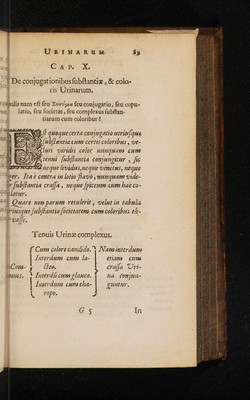 URINARUM. 89
CAP. X.
De conjugationibus substantiæ, & colo-
ris Urinarum.
nam est seu Συζυγία seu conjugatio, seu copu-
latio, seu societas, seu complexus substan-
tiarum cum coloribus?
Est quoque certa conjugatio utriusque
substantiæ cum certis coloribus, ve-
luti viridis color nunquam cum
tenui substantia conjungitur, sic
neque lividus, neque venetus, neque
Ita è contra in lotio flavo, nunquam vide-
substantia crassa, neque spicum cum hac co-
latur.
Quare non parum retulerit, velut in tabula
substantiæ societatem cum coloribus ob-
Tenuis Urinæ complexus.
Cum colore candido. Nam interdum
Interdum cum la- etiam cum
cteo. crassa Uri-
Interdũ cum glauco. na conjun-
Interdum cum cha- guntur.
ropo.
G 5 In